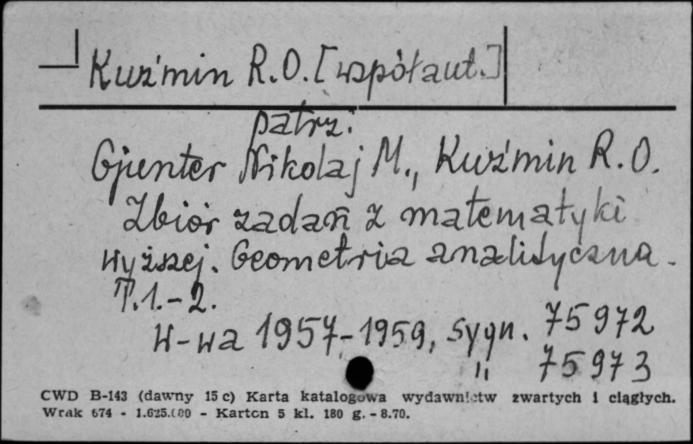 Kuźmin R.O. [współaut.]
patrz:
Gjunter Nikolaj M., Kuźmin R.O.
Zbiór zadań z matematyki
wyższej. Geometria analityczna.
T.1.-2.
W-wa 1957-1959, sygn. 75972
" 75973
CWD B-143 (dawny 15 c) Karta katalogowa wydawnictw zwartych i ciągłych.
Wrak 674 - 1.625.000 - Karton 5 kl. 180 g. - 8.70.